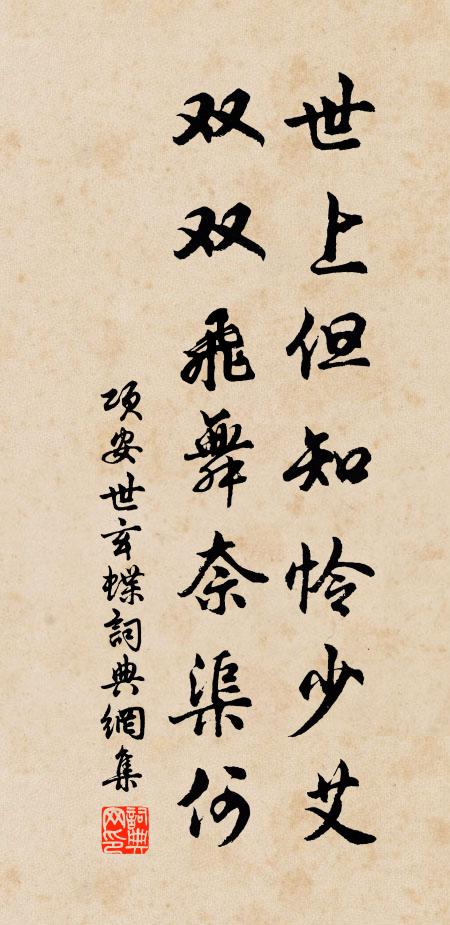 世上但知怜少艾
双双飛舞奈渠何
项安世玄蝶詞典網集
詞典网印